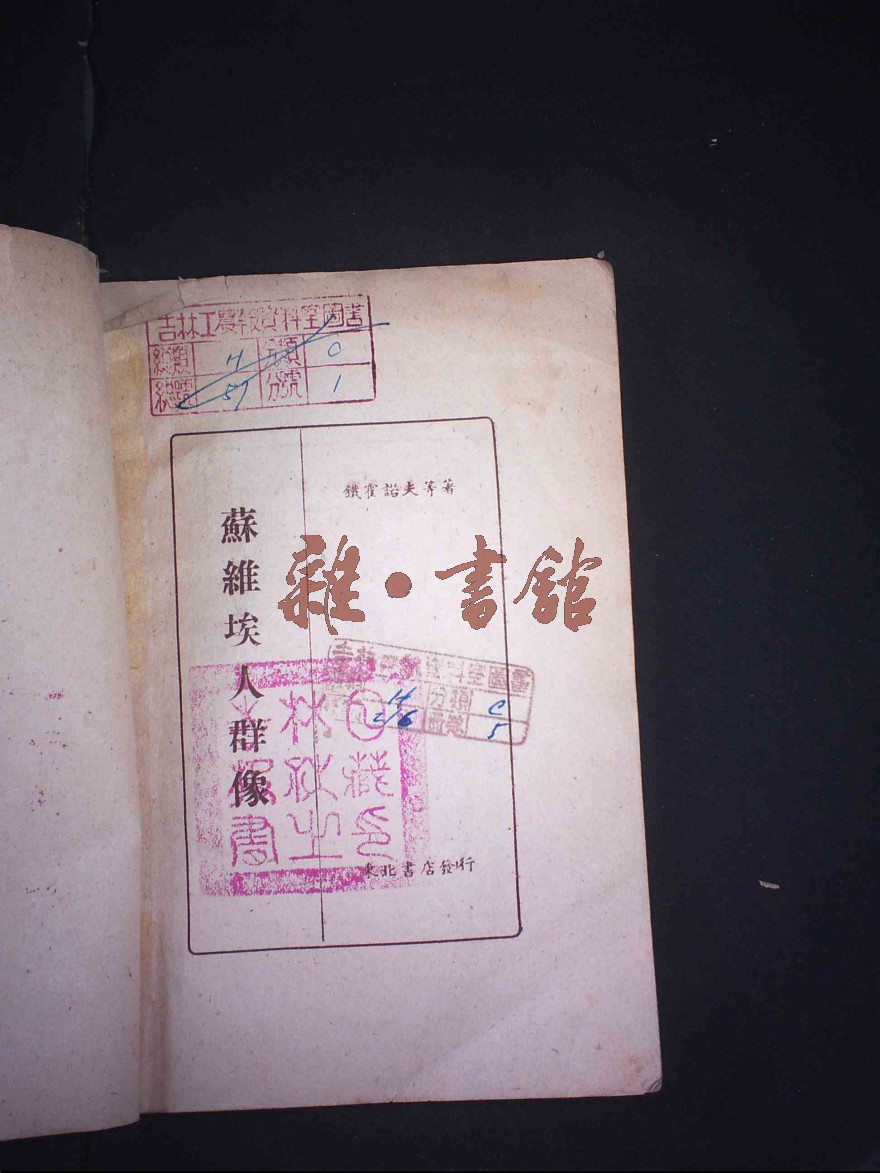 吉林工農
資料室圖書
總類 H 分類 0
總號 57 分號 1
鐵霍諾夫等著
蘇維埃人群像
雜·書館
資料室圖書
H 分類 C
216 5
林
藏
書
之
印
東北書店發行